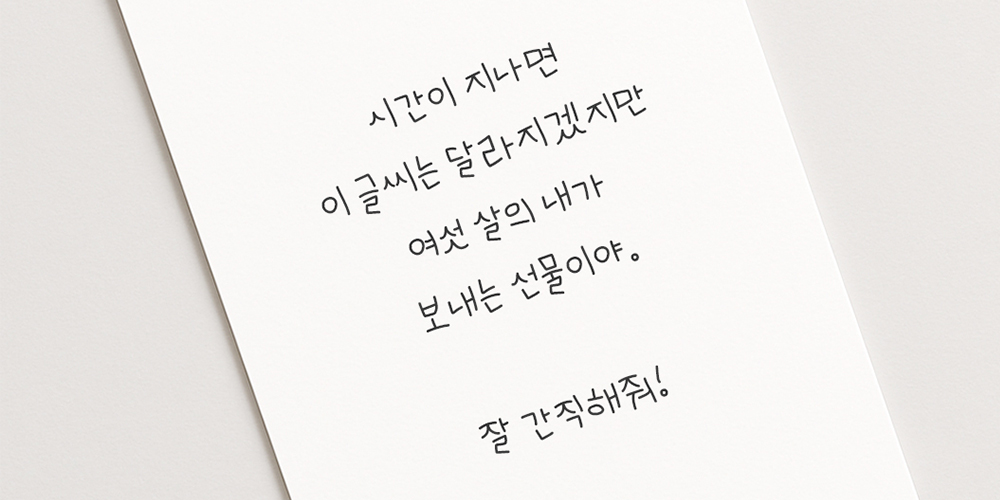 시간이 지나면
이 글씨는 달라지겠지만
여섯 살의 내가
보내는 선물이야.
잘 간직해줘!